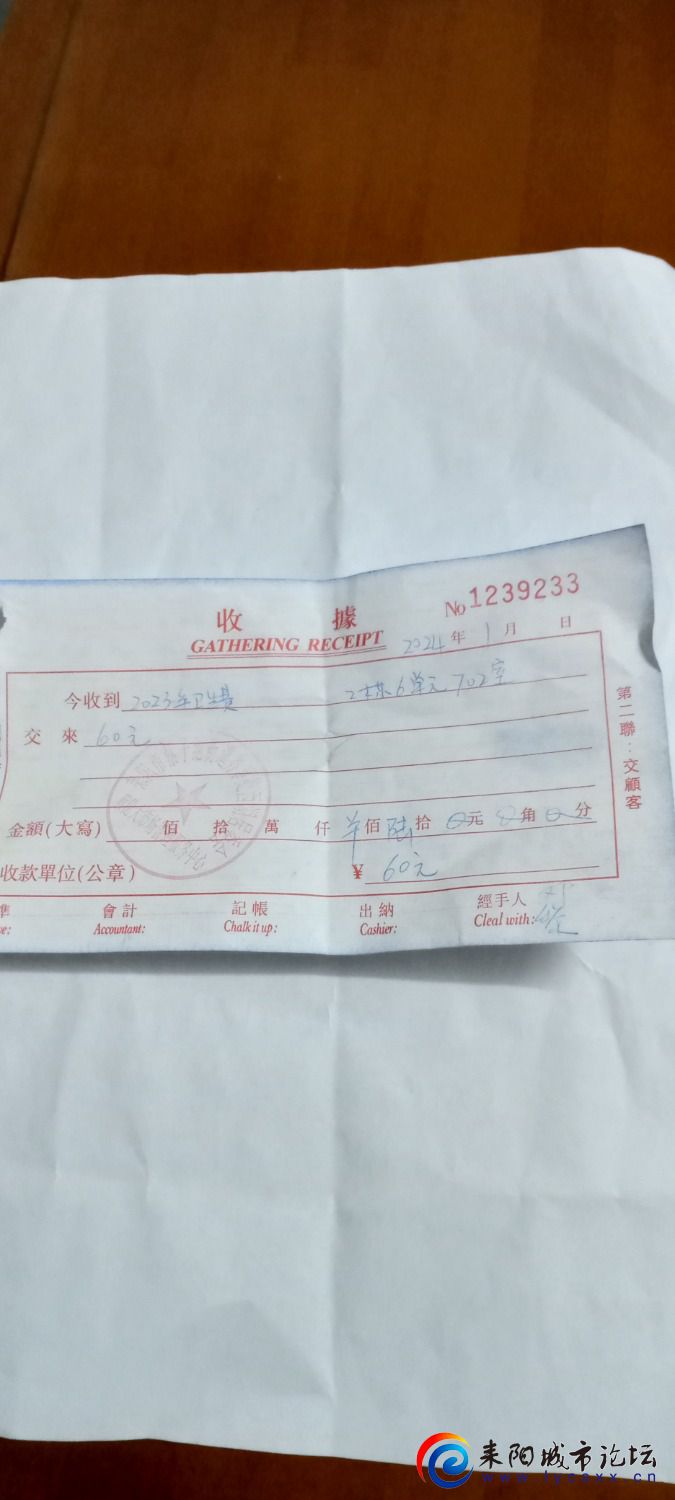 收 據
No 1239233
GATHERING RECEIPT
2024 年 1 月 日
今收到 2023年卫生费 2栋6单元702室
交 來 60元
金額(大寫) 佰 拾 萬 仟 佰 陆 拾 元 角 分
收款單位(公章) ¥ 60元
準 會計 記帳 出納 經手人
ve: Accountant: Chalk it up: Cashier: Cleal with:
第二聯:交顧客
耒阳城市论坛